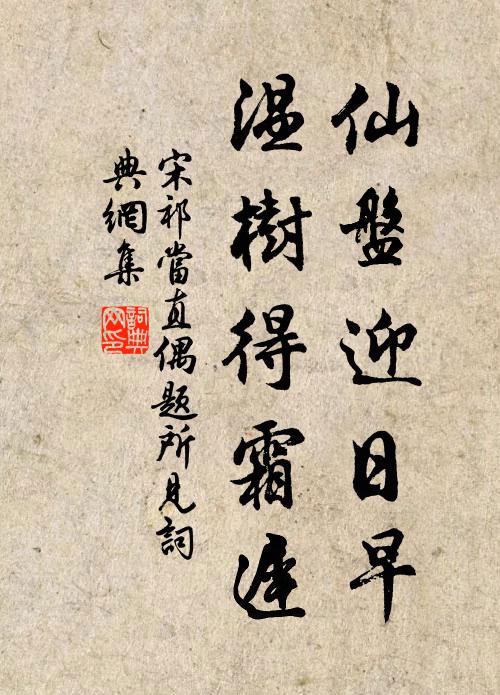 仙盤迎日早
溫樹得霜遲
宋祁當直偶題所見詞
典網集
詞典
网印